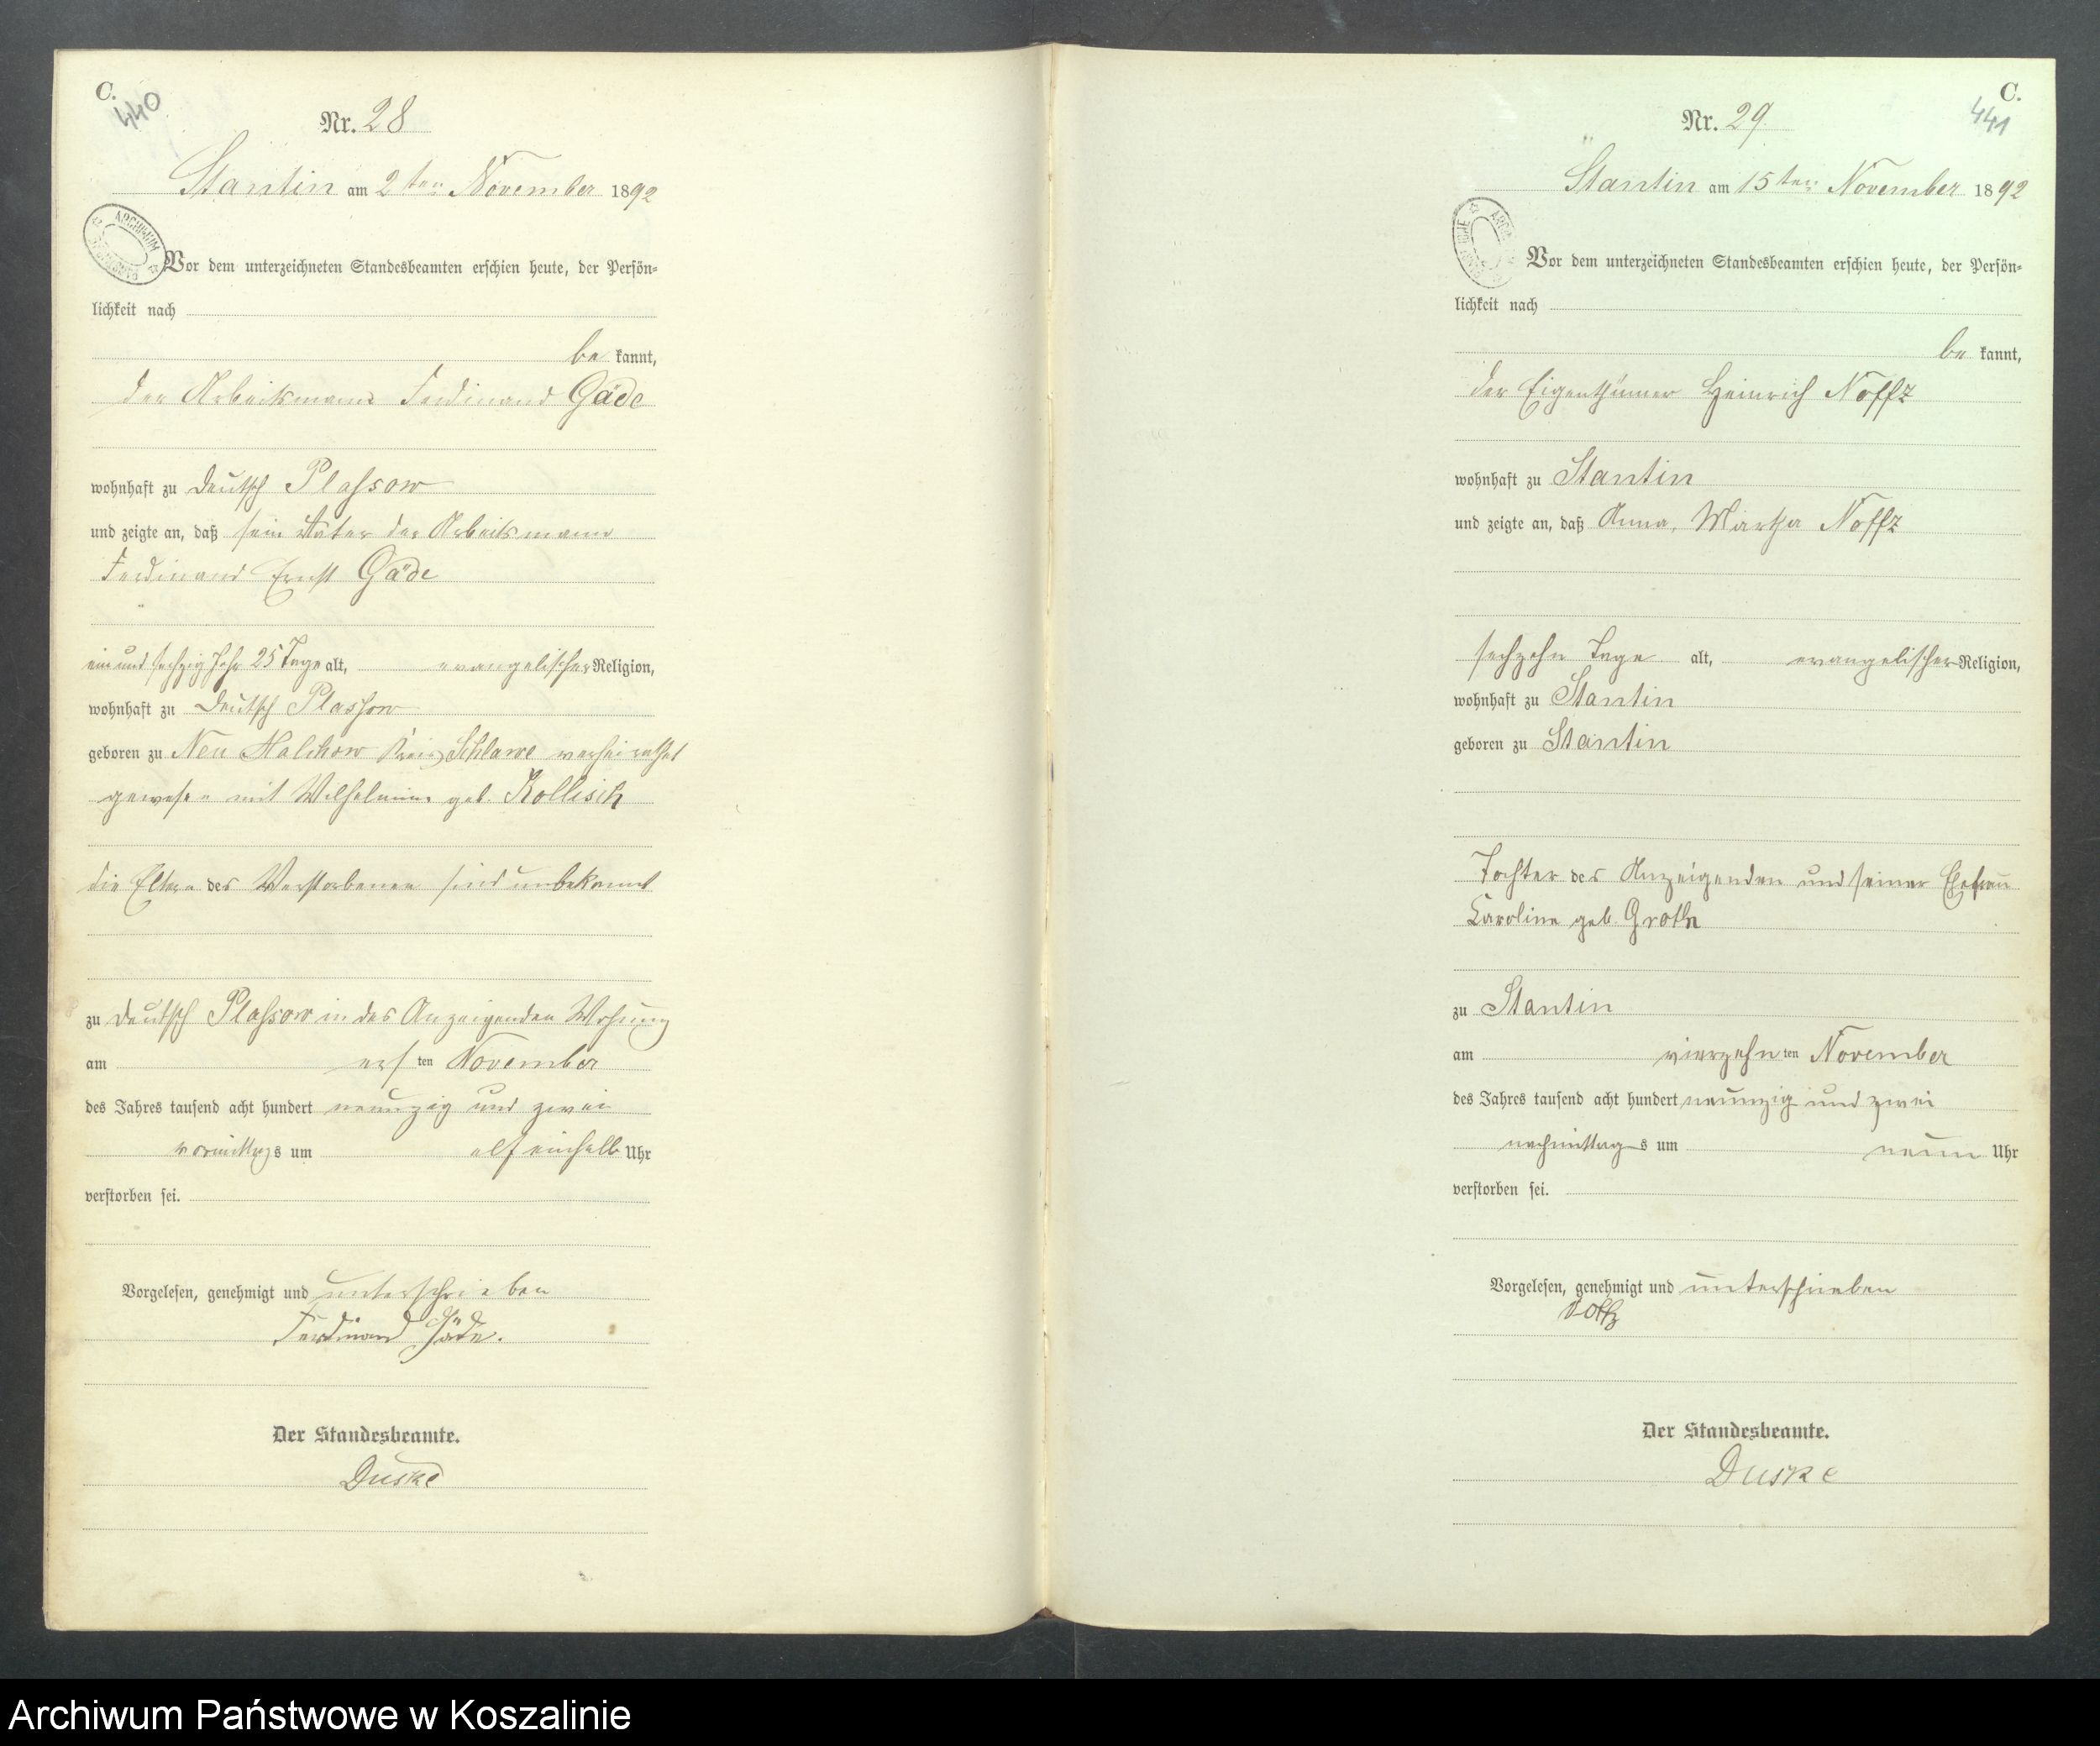 C.
440
Nr. 28
Stantin am 2ten November 1892
Vor dem unterzeichneten Standesbeamten erschien heute, der Persön-
lichkeit nach
bekannt,
der Arbeitsmann Ferdinand Gäde
wohnhaft zu Deutsch Plassow
und zeigte an, daß sein Vater der Arbeitsmann
Ferdinand Ernst Gäde
ein und sechzig Jahr 25 Tage alt, evangelischer Religion,
wohnhaft zu Deutsch Plassow
geboren zu Neu Malchow Kreis Schlawe verheirathet
gewesen mit Wilhelmine geb. Kollisch
die Eltern des Verstorbenen sind unbekannt
zu Deutsch Plassow in des Anzeigenden Wohnung
am ersten November
des Jahres tausend acht hundert neunzig und zwei
vormittags um elf einhalb Uhr
verstorben sei.
Vorgelesen, genehmigt und unterschrieben
Ferdinand Gäde.
Der Standesbeamte.
Duske
C.
441
Nr. 29
Stantin am 15ten November 1892
Vor dem unterzeichneten Standesbeamten erschien heute, der Persön-
lichkeit nach
bekannt,
der Eigenthümer Heinrich Noffz
wohnhaft zu Stantin
und zeigte an, daß Anna, Martha Noffz
sechzehn Tage alt, evangelischer Religion,
wohnhaft zu Stantin
geboren zu Stantin
Tochter des Anzeigenden und seiner Ehefrau
Caroline geb. Groth
zu Stantin
am vierzehnten November
des Jahres tausend acht hundert neunzig und zwei
nachmittags um neun Uhr
verstorben sei.
Vorgelesen, genehmigt und unterschrieben
Der Standesbeamte.
Duske
Archiwum Państwowe w Koszalinie